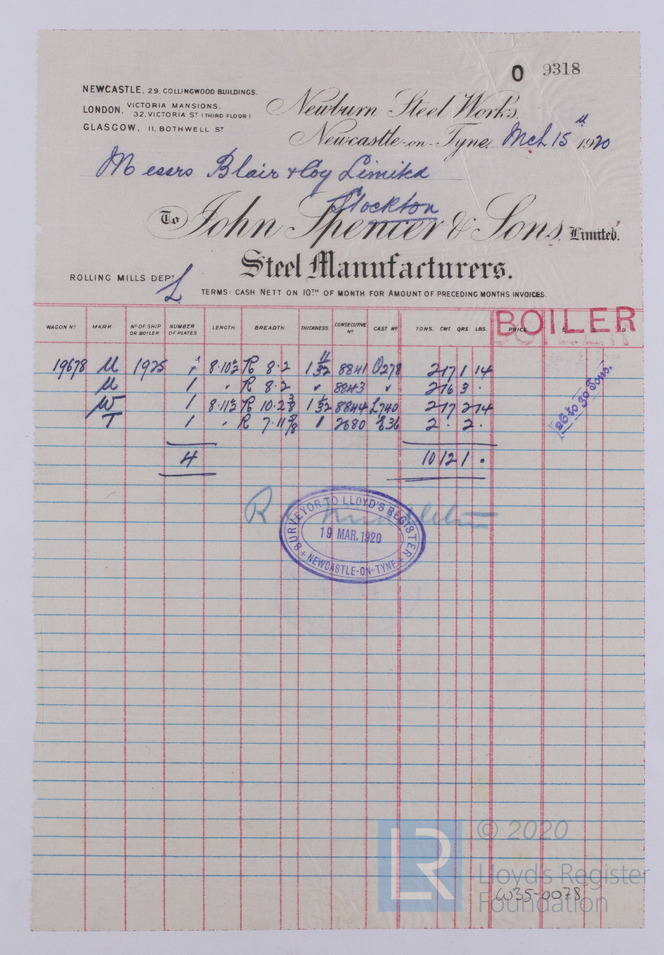 O 9318
NEWCASTLE, 29, COLLINGWOOD BUILDINGS.
LONDON, VICTORIA MANSIONS,
32, VICTORIA ST (THIRD FLOOR)
GLASGOW, 11, BOTHWELL ST
Newburn Steel Works,
Newcastle-on-Tyne, Mch 15th 1920
Messrs Blair & Coy Limited
Stockton
To John Spencer & Sons, Limited.
Steel Manufacturers.
ROLLING MILLS DEPT
TERMS: CASH NETT ON 10TH OF MONTH FOR AMOUNT OF PRECEDING MONTHS INVOICES.
BOILER
WAGON NO MARK NO OF SHIP OR BOILER NUMBER OF PLATES LENGTH BREADTH THICKNESS CONSECUTIVE NO CAST NO TONS. CWT QRS. LBS. PRICE
19678 U 1925 1 8·10½ R 8·2 1 11/32 8841 0278 2 17 1 14
U 1 " R 8·2 " 8843 " 2 16 3 ·
W 1 8·11½ R 10·2 1 8844 L740 2 17 2 14
T 1 " R 7·11 1 2680 2 · 2 ·
4 10 12 1 ·
26 to 30 Tons.
SURVEYOR TO LLOYD'S REGISTER
19 MAR. 1920
NEWCASTLE-ON-TYNE
LR © 2020
Lloyd's Register
Foundation
W35-0078